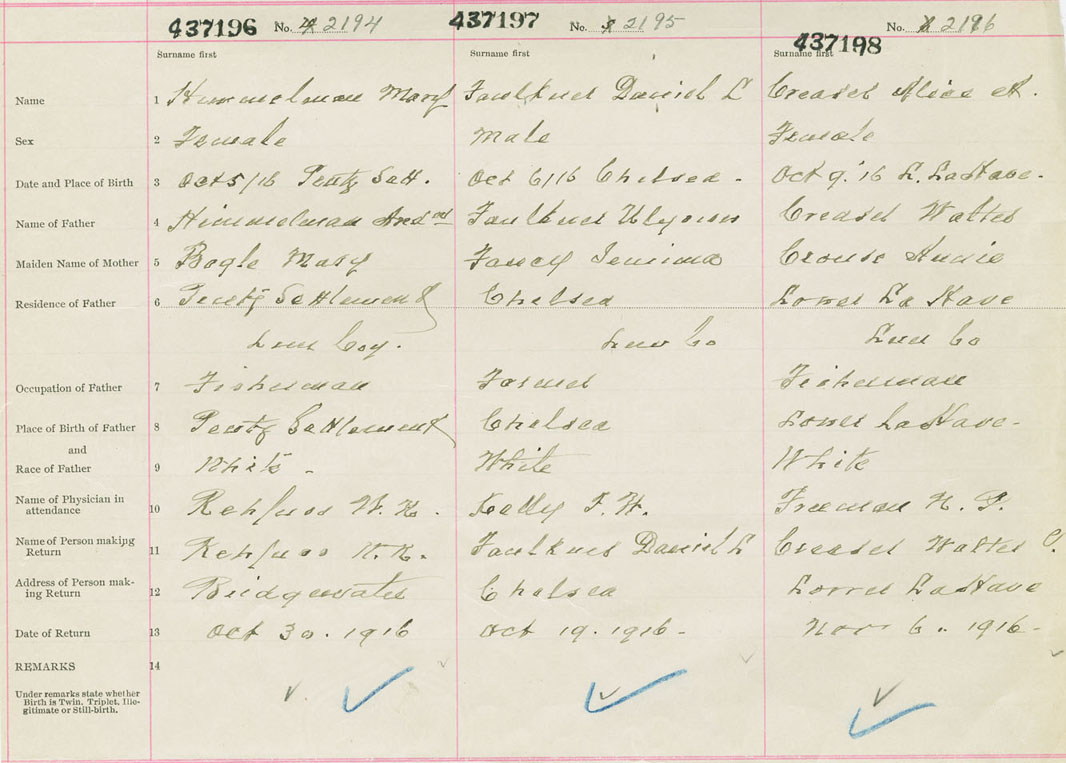 437196 No. 2194 437197 No. 2195 No. 2196
437198
Surname first Surname first Surname first
Name 1 Himmelman Mary Faulkner Daniel L Creaser Alice A.
Sex 2 Female Male Female
Date and Place of Birth 3 Oct 5/16 Pentz Sett. Oct 6/16 Chelsea - Oct 9. 16 L. LaHave -
Name of Father 4 Himmelman Faulkner Creaser Walter
Maiden Name of Mother 5 Bogle Mary Fancy Jemima Crouse Annie
Residence of Father 6 Pentz Settlement Chelsea Lower La Have
Lun Coy. Lun Co Lun Co
Occupation of Father 7 Fisherman Farmer Fisherman
Place of Birth of Father 8 Pentz Settlement Chelsea Lower LaHave -
and
Race of Father 9 White - White White
Name of Physician in
attendance 10 Rehfuss W. N. Kelly F. W. Freeman N. P.
Name of Person making
Return 11 Rehfuss W. N. Faulkner Daniel L Creaser Walter C.
Address of Person mak-
ing Return 12 Bridgewater Chelsea Lower LaHave
Date of Return 13 Oct 30. 1916 Oct 19. 1916 - Nov 6. 1916 -
REMARKS 14
Under remarks state whether
Birth is Twin, Triplet, Ille-
gitimate or Still-birth.